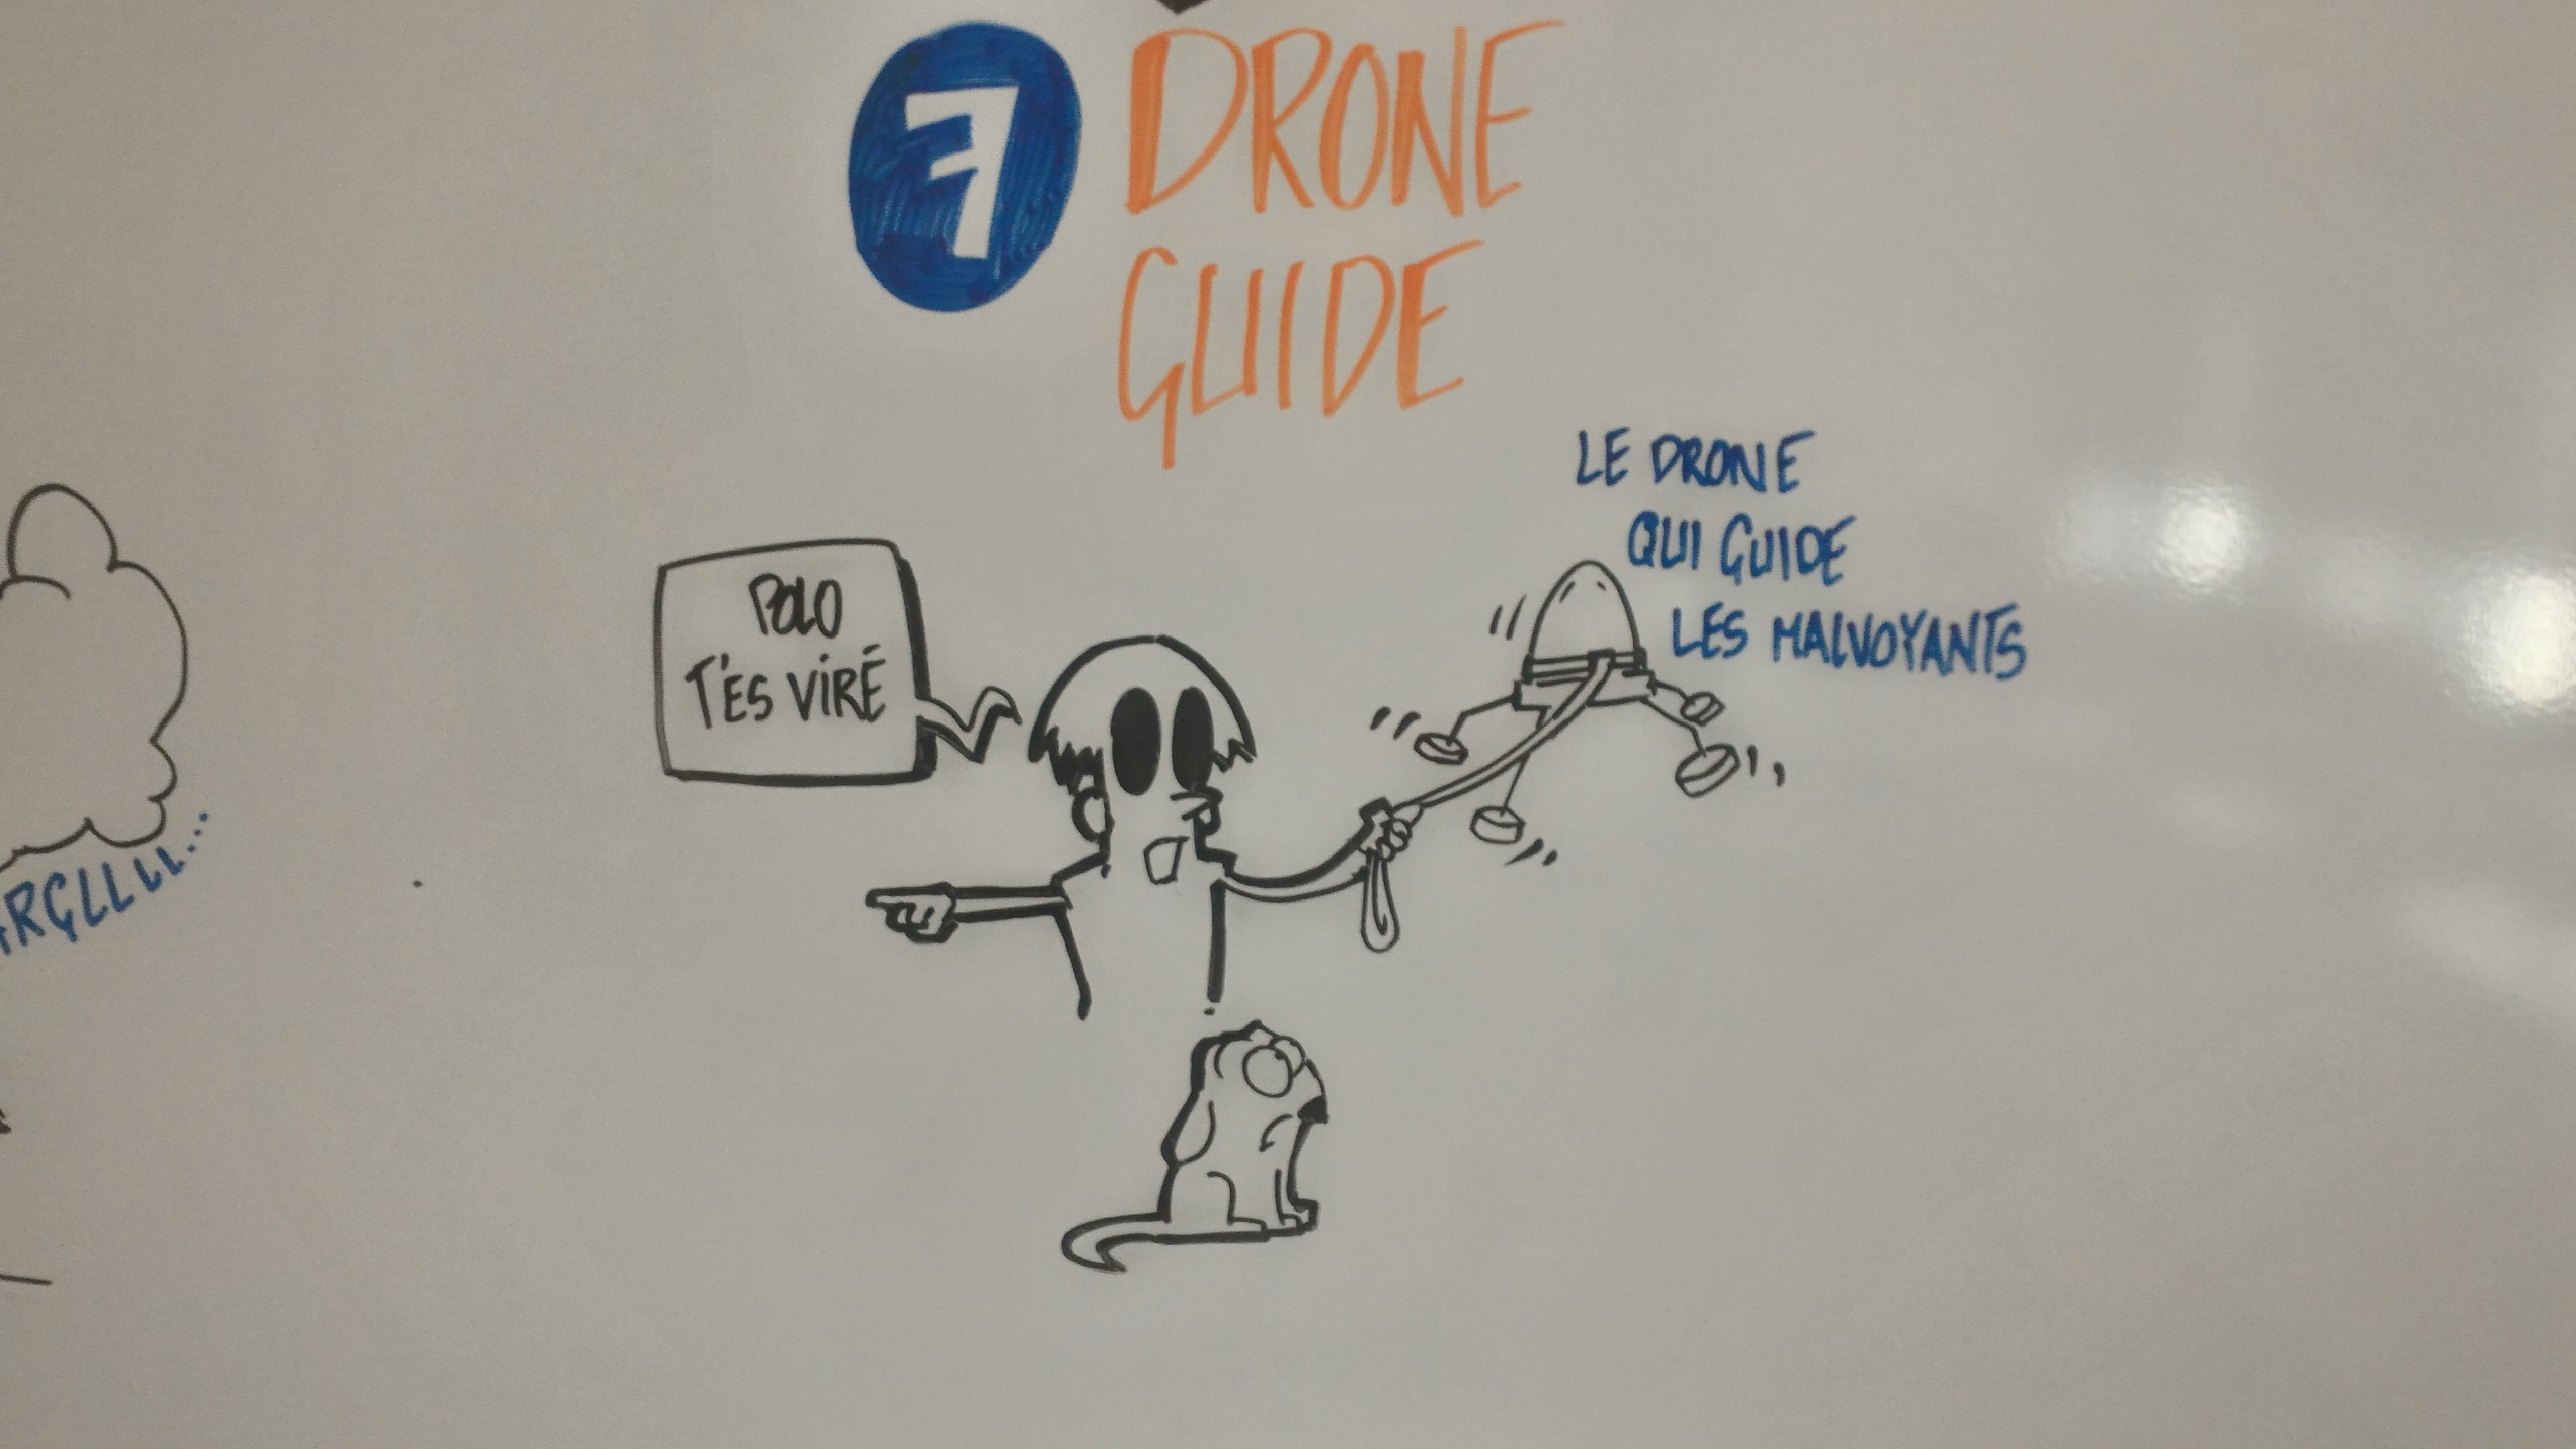 7 DRONE
GUIDE
LE DRONE
QUI GUIDE
LES MALVOYANTS
POLO
T'ES VIRÉ
RGLLLLL...